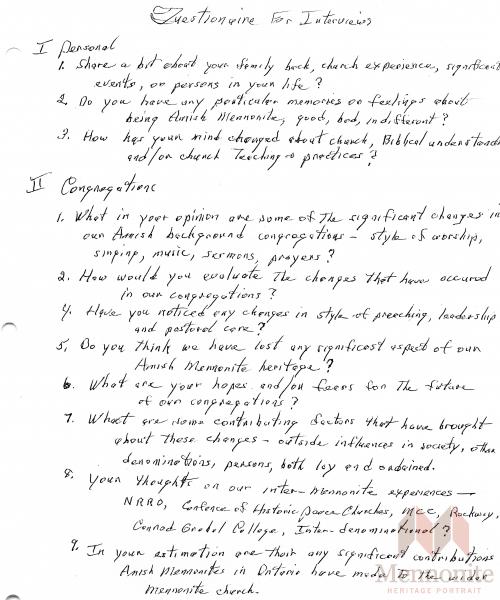 Questionaire For Interviews
I Personal
1. Share a bit about your family back, church experience, significant
events, or persons in your life?
2. Do you have any particular memories or feelings about
being Amish Mennonite, good, bad, indifferent?
3. How has your mind changed about church, Biblical understandi
and/or church Teaching & practices?
II Congregations
1. What in your opinion are some of the significant changes in
our Amish background congregations - style of worship,
singing, music, sermons, prayers?
2. How would you evaluate the changes that have occured
in our congregations?
4. Have you noticed any changes in style of preaching, leadership
and pastoral care?
5. Do you think we have lost any significant aspect of our
Amish Mennonite heritage?
6. What are your hopes and/or fears for the future
of our congregations?
7. What are some contributing factors that have brought
about these changes - outside influences in society, other
denominations, persons, both lay and ordained.
8. Your thoughts on our inter-Mennonite experiences —
NRRO, Confence of Historic peace Churches, MCC, Rockway,
Conrad Grebel College, Inter-denominational?
9. In your estimation are their any significant contributions
Amish Mennonites in Ontario have made to the wider
Mennonite church.
Mennonite
HERITAGE PORTRAIT